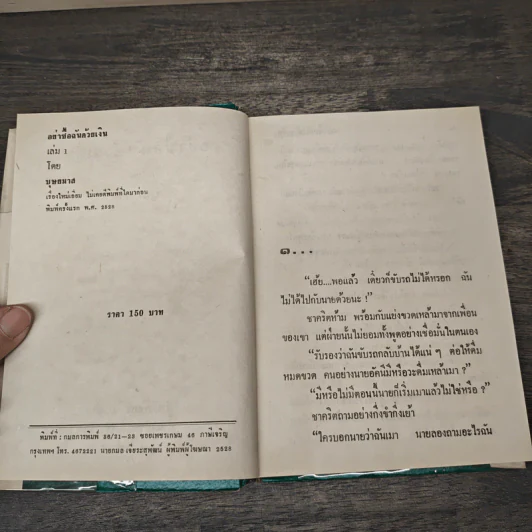 อย่าซื้อฉันด้วยเงิน
เล่ม 1
โดย
บุษยมาส
เรื่องใหม่เอี่ยม ไม่เคยตีพิมพ์ที่ใดมาก่อน
พิมพ์ครั้งแรก พ.ศ. 2528
ราคา 150 บาท
พิมพ์ที่ : กมลการพิมพ์ 26/21-28 ซอยเพชรเกษม 46 ภาษีเจริญ
กรุงเทพฯ โทร. 4672221 นายกมล เจียระสุพัฒน์ ผู้พิมพ์ผู้โฆษณา 2528
๑...
“เฮ้ย....พอแล้ว เดี๋ยวก็ขับรถไม่ได้หรอก ฉัน
ไม่ได้ไปกับนายด้วยนะ !”
ชาคริตห้าม พร้อมกับแย่งขวดเหล้ามาจากเพื่อน
ของเขา แต่ฝ่ายนั้นไม่ยอมทั้งพูดอย่างเชื่อมั่นในตนเอง
“รับรองว่าฉันขับรถกลับบ้านได้แน่ ๆ ต่อให้ดื่ม
หมดขวด คนอย่างนายอัคนีมีหรือจะดื่มเหล้าเมา ?”
“มีหรือไม่มีตอนนี้นายก็เริ่มเมาแล้วไม่ใช่หรือ ?”
ชาคริตถามอย่างกึ่งขำกึ่งเย้า
“ใครบอกนายว่าฉันเมา นายลองถามอะไรฉัน